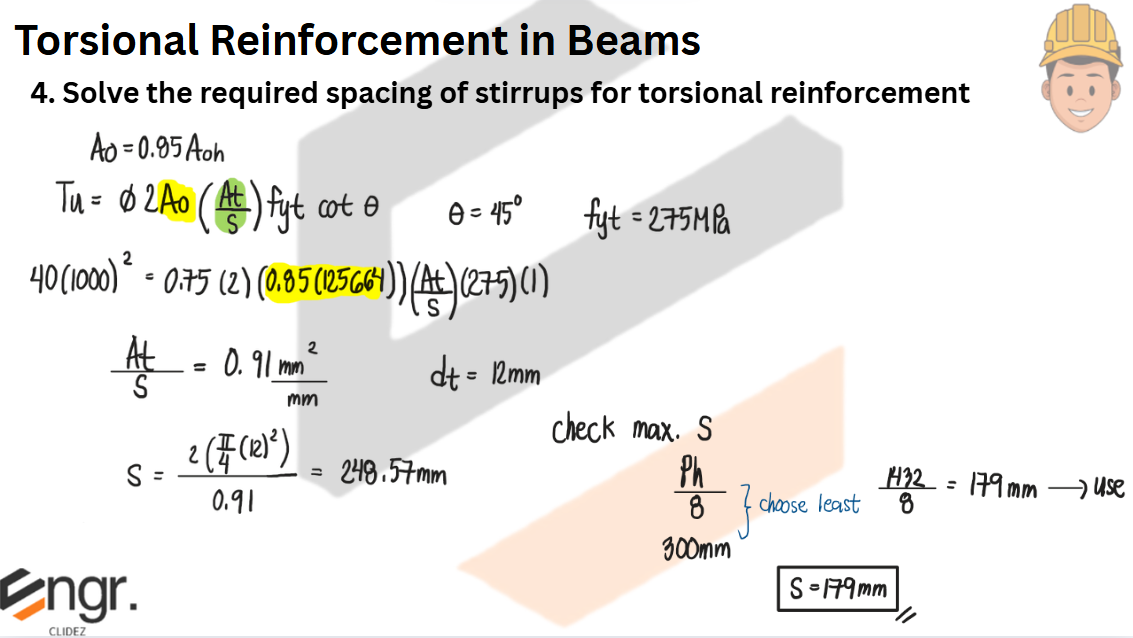 Torsional Reinforcement in Beams
4. Solve the required spacing of stirrups for torsional reinforcement
Ao = 0.85 Aoh
Tu = ϕ 2Ao (At/S) fyt cot θ
θ = 45°
fyt = 275MPa
40(1000)² = 0.75 (2) (0.85(125664)) (At/S) (275) (1)
At/S = 0.91 mm²/mm
dt = 12mm
S = 2(π/4 (12)²)/0.91 = 248.57mm
check max. S
Ph/8
300mm
} choose least
1432/8 = 179 mm → use
S = 179 mm
Engr.
CLIDEZ